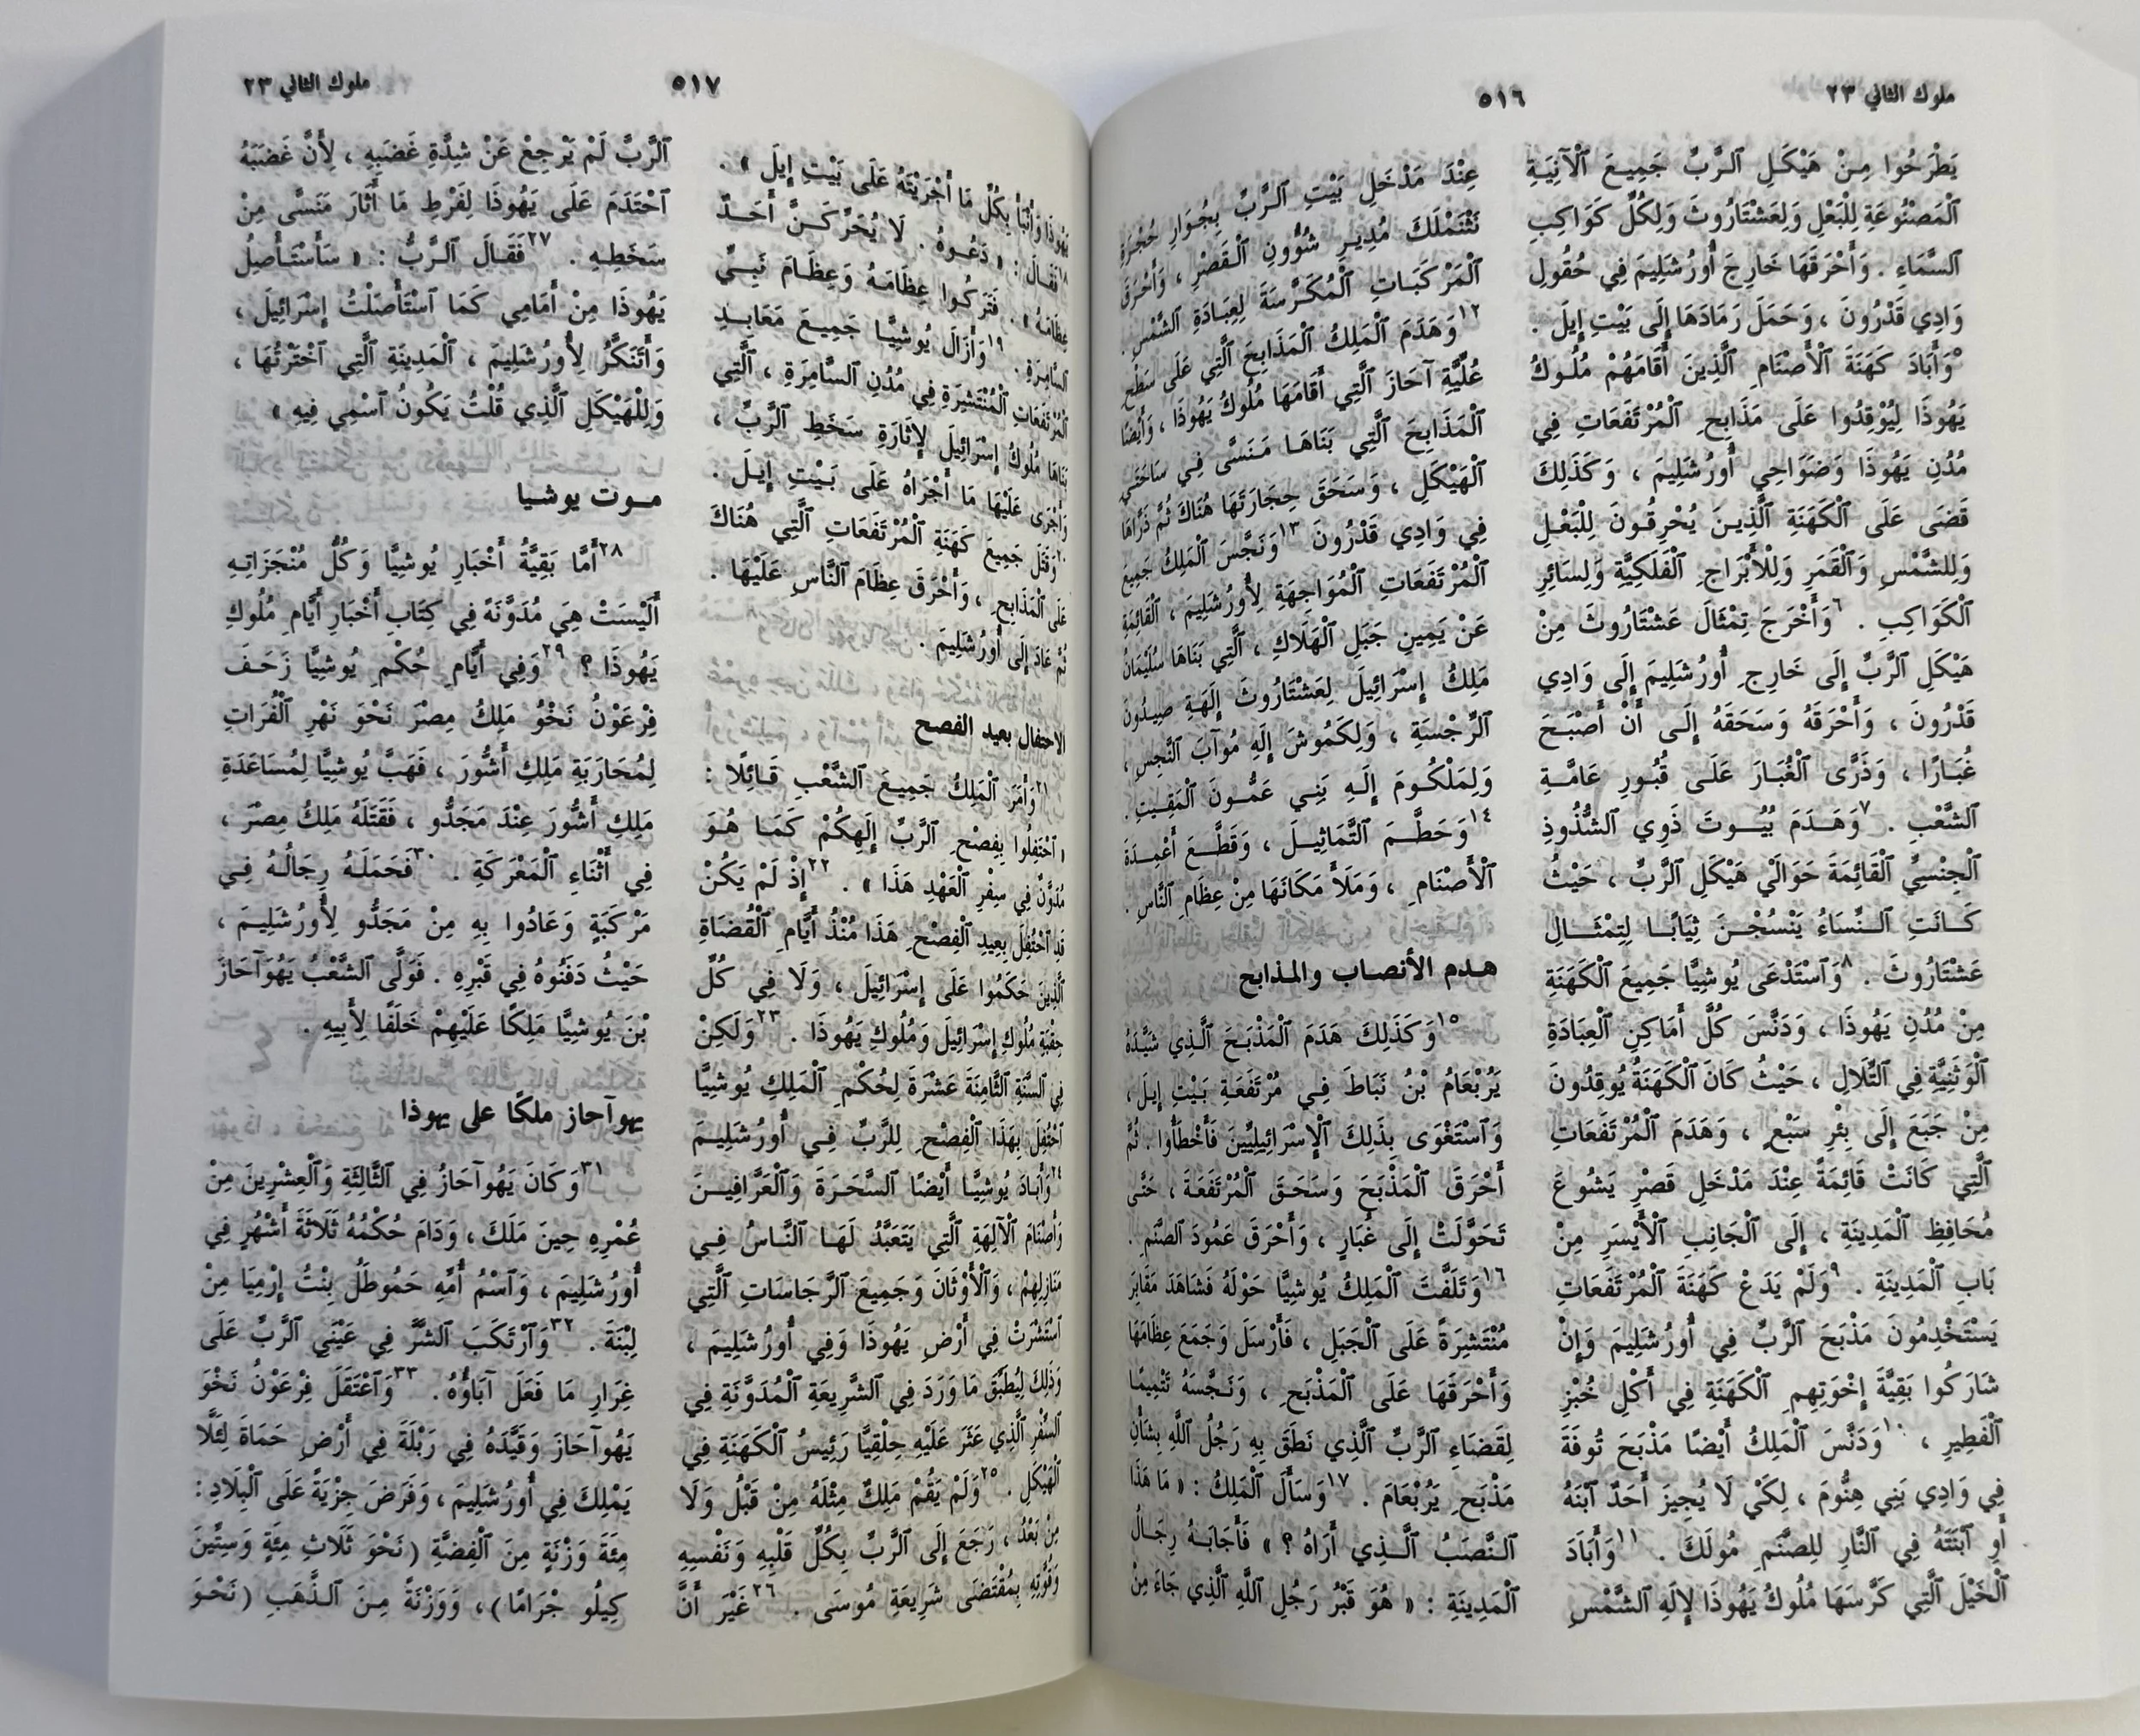 ملوك الثاني ٢٣
٥١٦
يَطْرَحُوا مِنْ هَيْكَلِ ٱلرَّبِّ جَمِيعَ ٱلْآنِيَةِ
ٱلْمَصْنُوعَةِ لِلْبَعْلِ وَلِعَشْتَارُوثَ وَلِكُلِّ كَوَاكِبِ
ٱلسَّمَاءِ . وَأَحْرَقَهَا خَارِجَ أُورُشَلِيمَ فِي حُقُولِ
وَادِي قَدْرُونَ ، وَحَمَلَ رَمَادَهَا إِلَى بَيْتِ إِيلَ .
٥وَأَبَادَ كَهَنَةَ ٱلْأَصْنَامِ ٱلَّذِينَ أَقَامَهُمْ مُلُوكُ
يَهُوذَا لِيُوْقِدُوا عَلَى مَذَابِحِ ٱلْمُرْتَفَعَاتِ فِي
مُدُنِ يَهُوذَا وَضَوَاحِي أُورُشَلِيمَ ، وَكَذَلِكَ
قَضَى عَلَى ٱلْكَهَنَةِ ٱلَّذِينَ يُحْرِقُونَ لِلْبَعْلِ
وَلِلشَّمْسِ وَٱلْقَمَرِ وَلِلْأَبْرَاجِ ٱلْفَلَكِيَّةِ وَلِسَائِرِ
ٱلْكَوَاكِبِ . ٦وَأَخْرَجَ تِمْثَالَ عَشْتَارُوثَ مِنْ
هَيْكَلِ ٱلرَّبِّ إِلَى خَارِجِ أُورُشَلِيمَ إِلَى وَادِي
قَدْرُونَ ، وَأَحْرَقَهُ وَسَحَقَهُ إِلَى أَنْ أَصْبَحَ
غُبَارًا ، وَذَرَّى ٱلْغُبَارَ عَلَى قُبُورِ عَامَّةِ
ٱلشَّعْبِ . ٧وَهَدَمَ بُيُوتَ ذَوِي ٱلشُّذُوذِ
ٱلْجِنْسِيِّ ٱلْقَائِمَةَ حَوَالَيْ هَيْكَلِ ٱلرَّبِّ ، حَيْثُ
كَانَتِ ٱلنِّسَاءُ يَنْسُجْنَ ثِيَابًا لِتِمْثَالِ
عَشْتَارُوثَ . ٨وَٱسْتَدْعَى يُوشِيَّا جَمِيعَ ٱلْكَهَنَةِ
مِنْ مُدُنِ يَهُوذَا ، وَدَنَّسَ كُلَّ أَمَاكِنِ ٱلْعِبَادَةِ
ٱلْوَثَنِيَّةِ فِي ٱلتِّلَالِ ، حَيْثُ كَانَ ٱلْكَهَنَةُ يُوقِدُونَ
مِنْ جَبَعَ إِلَى بِئْرِ سَبْعٍ ، وَهَدَمَ ٱلْمُرْتَفَعَاتِ
ٱلَّتِي كَانَتْ قَائِمَةً عِنْدَ مَدْخَلِ قَصْرِ يَشُوعَ
مُحَافِظِ ٱلْمَدِينَةِ ، إِلَى ٱلْجَانِبِ ٱلْأَيْسَرِ مِنْ
بَابِ ٱلْمَدِينَةِ . ٩وَلَمْ يَدَعْ كَهَنَةَ ٱلْمُرْتَفَعَاتِ
يَسْتَخْدِمُونَ مَذْبَحَ ٱلرَّبِّ فِي أُورُشَلِيمَ وَإِنْ
شَارَكُوا بَقِيَّةَ إِخْوَتِهِمِ ٱلْكَهَنَةِ فِي أَكْلِ خُبْزِ
ٱلْفَطِيرِ ، ١٠وَدَنَّسَ ٱلْمَلِكُ أَيْضًا مَذْبَحَ تُوفَةَ
فِي وَادِي بَنِي هِنُّومَ ، لِكَيْ لَا يُجِيزَ أَحَدٌ ٱبْنَهُ
أَوِ ٱبْنَتَهُ فِي ٱلنَّارِ لِلصَّنَمِ مُولَكَ . ١١وَأَبَادَ
ٱلْخَيْلَ ٱلَّتِي كَرَّسَهَا مُلُوكُ يَهُوذَا لِإِلَهِ ٱلشَّمْسِ
عِنْدَ مَدْخَلِ بَيْتِ ٱلرَّبِّ بِجُوَارِ حُجْرَةِ
نَثْنَمْلَكَ مُدِيرِ شُؤُونِ ٱلْقَصْرِ ، وَأَحْرَقَ
ٱلْمَرْكَبَاتِ ٱلْمُكَرَّسَةَ لِعِبَادَةِ ٱلشَّمْسِ .
١٢وَهَدَمَ ٱلْمَلِكُ ٱلْمَذَابِحَ ٱلَّتِي عَلَى سَطْحِ
عُلِّيَّةِ آحَازَ ٱلَّتِي أَقَامَهَا مُلُوكُ يَهُوذَا ، وَأَيْضًا
ٱلْمَذَابِحَ ٱلَّتِي بَنَاهَا مَنَسَّى فِي سَاحَتَيِ
ٱلْهَيْكَلِ ، وَسَحَقَ حِجَارَتَهَا هُنَاكَ ثُمَّ ذَرَّاهَا
فِي وَادِي قَدْرُونَ ١٣وَنَجَّسَ ٱلْمَلِكُ جَمِيعَ
ٱلْمُرْتَفَعَاتِ ٱلْمُوَاجِهَةِ لِأُورُشَلِيمَ ، ٱلْقَائِمَةِ
عَنْ يَمِينِ جَبَلِ ٱلْهَلَاكِ ، ٱلَّتِي بَنَاهَا سُلَيْمَانُ
مَلِكُ إِسْرَائِيلَ لِعَشْتَارُوثَ إِلَهَةِ صِيدُونَ
ٱلرِّجْسَةِ ، وَلِكَمُوشَ إِلَهِ مُوآبَ ٱلنَّجِسِ ،
وَلِمَلْكُومَ إِلَهِ بَنِي عَمُّونَ ٱلْمَقِيتِ .
١٤وَحَطَّمَ ٱلتَّمَاثِيلَ ، وَقَطَّعَ أَعْمِدَةَ
ٱلْأَصْنَامِ ، وَمَلَأَ مَكَانَهَا مِنْ عِظَامِ ٱلنَّاسِ .
هدم الأنصاب والمذابح
١٥وَكَذَلِكَ هَدَمَ ٱلْمَذْبَحَ ٱلَّذِي شَيَّدَهُ
يَرُبْعَامُ بْنُ نَبَاطَ فِي مُرْتَفَعَةِ بَيْتِ إِيلَ ،
وَٱسْتَغْوَى بِذَلِكَ ٱلْإِسْرَائِيلِيِّينَ فَأَخْطَأُوا . ثُمَّ
أَحْرَقَ ٱلْمَذْبَحَ وَسَحَقَ ٱلْمُرْتَفَعَةَ ، حَتَّى
تَحَوَّلَتْ إِلَى غُبَارٍ ، وَأَحْرَقَ عَمُودَ ٱلصَّنَمِ .
١٦وَتَلَفَّتَ ٱلْمَلِكُ يُوشِيَّا حَوْلَهُ فَشَاهَدَ مَقَابِرَ
مُنْتَشِرَةً عَلَى ٱلْجَبَلِ ، فَأَرْسَلَ وَجَمَعَ عِظَامَهَا
وَأَحْرَقَهَا عَلَى ٱلْمَذْبَحِ ، وَنَجَّسَهُ تَتْمِيمًا
لِقَضَاءِ ٱلرَّبِّ ٱلَّذِي نَطَقَ بِهِ رَجُلُ ٱللَّهِ بِشَأْنِ
مَذْبَحِ يَرُبْعَامَ . ١٧وَسَأَلَ ٱلْمَلِكُ : « مَا هَذَا
ٱلنَّصَبُ ٱلَّذِي أَرَاهُ ؟ » فَأَجَابَهُ رِجَالُ
ٱلْمَدِينَةِ : « هُوَ قَبْرُ رَجُلِ ٱللَّهِ ٱلَّذِي جَاءَ مِنْ
٥١٧
ملوك الثاني ٢٣
يَهُوذَا وَأَنْبَأَ بِكُلِّ مَا أَجْرَيْتَهُ عَلَى بَيْتِ إِيلَ » .
١٨فَقَالَ : « دَعُوهُ . لَا يُحَرِّكَنَّ أَحَدٌ
عِظَامَهُ » . فَتَرَكُوا عِظَامَهُ وَعِظَامَ نَبِيِّ
ٱلسَّامِرَةِ . ١٩وَأَزَالَ يُوشِيَّا جَمِيعَ مَعَابِدِ
ٱلْمُرْتَفَعَاتِ ٱلْمُنْتَشِرَةِ فِي مُدُنِ ٱلسَّامِرَةِ ، ٱلَّتِي
بَنَاهَا مُلُوكُ إِسْرَائِيلَ لِإِثَارَةِ سَخَطِ ٱلرَّبِّ ،
وَأَجْرَى عَلَيْهَا مَا أَجْرَاهُ عَلَى بَيْتِ إِيلَ .
٢٠وَقَتَلَ جَمِيعَ كَهَنَةِ ٱلْمُرْتَفَعَاتِ ٱلَّتِي هُنَاكَ
عَلَى ٱلْمَذَابِحِ ، وَأَحْرَقَ عِظَامَ ٱلنَّاسِ عَلَيْهَا .
ثُمَّ عَادَ إِلَى أُورُشَلِيمَ .
الاحتفال بعيد الفصح
٢١وَأَمَرَ ٱلْمَلِكُ جَمِيعَ ٱلشَّعْبِ قَائِلًا :
« ٱحْتَفِلُوا بِفِصْحِ ٱلرَّبِّ إِلَهِكُمْ كَمَا هُوَ
مُدَوَّنٌ فِي سِفْرِ ٱلْعَهْدِ هَذَا » . ٢٢إِذْ لَمْ يَكُنْ
قَدِ ٱحْتُفِلَ بِعِيدِ ٱلْفِصْحِ هَذَا مُنْذُ أَيَّامِ ٱلْقُضَاةِ
ٱلَّذِينَ حَكَمُوا عَلَى إِسْرَائِيلَ ، وَلَا فِي كُلِّ
حِقْبَةِ مُلُوكِ إِسْرَائِيلَ وَمُلُوكِ يَهُوذَا . ٢٣وَلَكِنْ
فِي ٱلسَّنَةِ ٱلثَّامِنَةَ عَشْرَةَ لِحُكْمِ ٱلْمَلِكِ يُوشِيَّا
ٱحْتُفِلَ بِهَذَا ٱلْفِصْحِ لِلرَّبِّ فِي أُورُشَلِيمَ
٢٤وَأَبَادَ يُوشِيَّا أَيْضًا ٱلسَّحَرَةَ وَٱلْعَرَّافِينَ
وَأَصْنَامَ ٱلْآلِهَةِ ٱلَّتِي يَتَعَبَّدُ لَهَا ٱلنَّاسُ فِي
مَنَازِلِهِمْ ، وَٱلْأَوْثَانَ وَجَمِيعَ ٱلرَّجَاسَاتِ ٱلَّتِي
ٱنْتَشَرَتْ فِي أَرْضِ يَهُوذَا وَفِي أُورُشَلِيمَ ،
وَذَلِكَ لِيُطَبِّقَ مَا وَرَدَ فِي ٱلشَّرِيعَةِ ٱلْمُدَوَّنَةِ فِي
ٱلسِّفْرِ ٱلَّذِي عَثَرَ عَلَيْهِ حِلْقِيَّا رَئِيسُ ٱلْكَهَنَةِ فِي
ٱلْهَيْكَلِ . ٢٥وَلَمْ يَقُمْ مَلِكٌ مِثْلَهُ مِنْ قَبْلُ وَلَا
مِنْ بَعْدُ ، رَجَعَ إِلَى ٱلرَّبِّ بِكُلِّ قَلْبِهِ وَنَفْسِهِ
وَقُوَّتِهِ بِمُقْتَضَى شَرِيعَةِ مُوسَى . ٢٦غَيْرَ أَنَّ
ٱلرَّبَّ لَمْ يَرْجِعْ عَنْ شِدَّةِ غَضَبِهِ ، لِأَنَّ غَضَبَهُ
ٱحْتَدَمَ عَلَى يَهُوذَا لِفَرْطِ مَا أَثَارَ مَنَسَّى مِنْ
سَخَطِهِ . ٢٧فَقَالَ ٱلرَّبُّ : « سَأَسْتَأْصِلُ
يَهُوذَا مِنْ أَمَامِي كَمَا ٱسْتَأْصَلْتُ إِسْرَائِيلَ ،
وَأَتَنَكَّرُ لِأُورُشَلِيمَ ، ٱلْمَدِينَةِ ٱلَّتِي ٱخْتَرْتُهَا ،
وَلِلْهَيْكَلِ ٱلَّذِي قُلْتُ يَكُونُ ٱسْمِي فِيهِ »
موت يوشيا
٢٨أَمَّا بَقِيَّةُ أَخْبَارِ يُوشِيَّا وَكُلُّ مُنْجَزَاتِهِ
أَلَيْسَتْ هِيَ مُدَوَّنَةً فِي كِتَابِ أَخْبَارِ أَيَّامِ مُلُوكِ
يَهُوذَا ؟ ٢٩وَفِي أَيَّامِ حُكْمِ يُوشِيَّا زَحَفَ
فِرْعَوْنُ نَخْوُ مَلِكُ مِصْرَ نَحْوَ نَهْرِ ٱلْفُرَاتِ
لِمُحَارَبَةِ مَلِكِ أَشُّورَ ، فَهَبَّ يُوشِيَّا لِمُسَاعَدَةِ
مَلِكِ أَشُّورَ عِنْدَ مَجَدُّو ، فَقَتَلَهُ مَلِكُ مِصْرَ ،
فِي أَثْنَاءِ ٱلْمَعْرَكَةِ . ٣٠فَحَمَلَهُ رِجَالُهُ فِي
مَرْكَبَةٍ وَعَادُوا بِهِ مِنْ مَجَدُّو لِأُورُشَلِيمَ ،
حَيْثُ دَفَنُوهُ فِي قَبْرِهِ . فَوَلَّى ٱلشَّعْبُ يَهُوَآحَازَ
بْنَ يُوشِيَّا مَلِكًا عَلَيْهِمْ خَلَفًا لِأَبِيهِ .
يهوآحاز ملكًا على يهوذا
٣١وَكَانَ يَهُوآحَازُ فِي ٱلثَّالِثَةِ وَٱلْعِشْرِينَ مِنْ
عُمْرِهِ حِينَ مَلَكَ ، وَدَامَ حُكْمُهُ ثَلَاثَةَ أَشْهُرٍ فِي
أُورُشَلِيمَ ، وَٱسْمُ أُمِّهِ حَمُوطَلُ بِنْتُ إِرْمِيَا مِنْ
لِبْنَةَ . ٣٢وَٱرْتَكَبَ ٱلشَّرَّ فِي عَيْنَيِ ٱلرَّبِّ عَلَى
غِرَارِ مَا فَعَلَ آبَاؤُهُ . ٣٣وَٱعْتَقَلَ فِرْعَوْنُ نَخْوَ
يَهُوآحَازَ وَقَيَّدَهُ فِي رَبْلَةَ فِي أَرْضِ حَمَاةَ لِئَلَّا
يَمْلِكَ فِي أُورُشَلِيمَ ، وَفَرَضَ جِزْيَةً عَلَى ٱلْبِلَادِ :
مِئَةَ وَزْنَةٍ مِنَ ٱلْفِضَّةِ (نَحْوَ ثَلَاثِ مِئَةٍ وَسِتِّينَ
كِيلُو جْرَامًا)، وَوَزْنَةً مِنَ ٱلذَّهَبِ (نَحْوَ